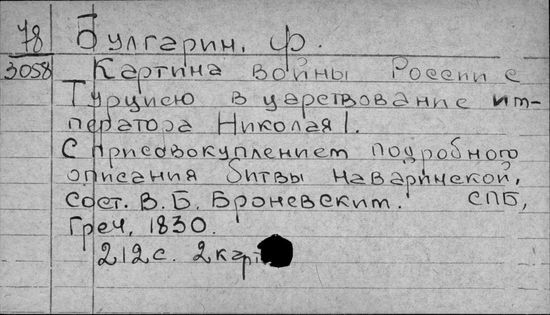 78 Булгарин, Ф.
3058 Картина войны России с
Турциею в царствование им-
ператора Николая I.
С присовокуплением подробного
описания битвы Наваринской,
сост. В. Б. Броневским. СПБ,
Греч, 1830.
212с. 2 карт